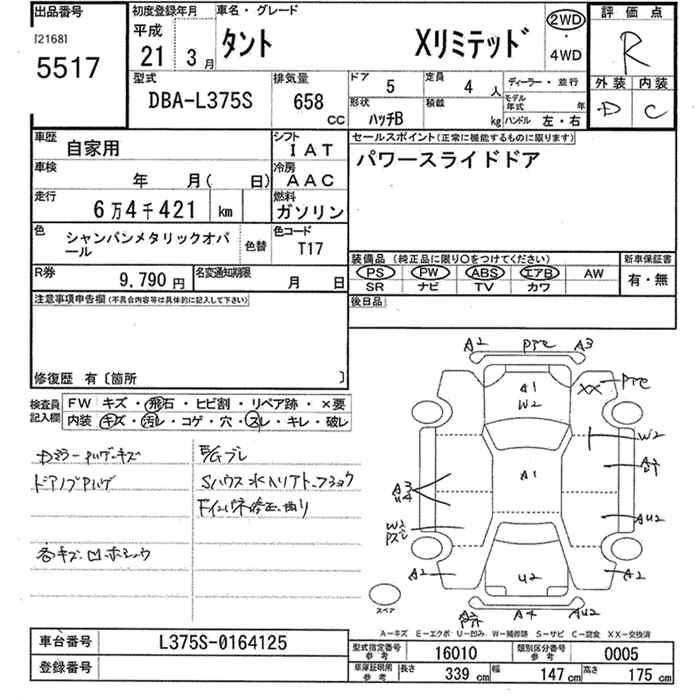 出品番号
[2168]
5517
初度登録年月
平成
21年
3月
車名・グレード
タント Xリミテッド
2WD
・
4WD
評価点
R
外装 内装
D C
型式
DBA-L375S
排気量
658
CC
ドア 5
定員 4 人
形状 ハッチB
積載 kg
ディーラー・並行
モデル年式 年
ハンドル 左・右
車歴 自家用
シフト IAT
車検 年 月( 日)
冷房 AAC
走行 6万4千421 km
燃料 ガソリン
色 シャンパンメタリックオパール
色替
色コード T17
R券 9,790 円
名変通知期限 月 日
セールスポイント(正常に機能するものに限ります)
パワースライドドア
装備品(純正品に限り○をつけてください)
PS PW ABS エアB AW
SR ナビ TV カワ
新車保証書
有・無
後日品
注意事項申告欄(不具合内容等は具体的に記入して下さい)
修復歴 有〔箇所 〕
検査員記入欄
FW キズ・飛石・ヒビ割・リペア跡・×要
内装 キズ・汚レ・コゲ・穴・スレ・キレ・破レ
ドアノブ
E/Gブレ
各キズ凹
A2 A3
A1
W2
XX
W2
A1
A3
U4
W2
AU2
A2 A2
U2
A4 AU2
スペア
A-キズ E-エクボ U-凹み W-補修跡 S-サビ C-腐食 XX-交換済
車台番号 L375S-0164125
登録番号
型式指定番号参考 16010
類別区分番号参考 0005
車庫証明用参考 長さ 339 cm 幅 147 cm 高さ 175 cm